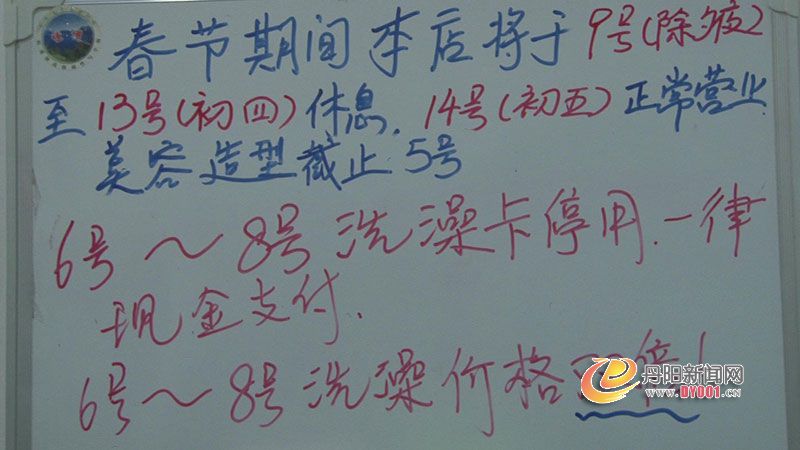 春节期间本店将于9号(除夜)
至13号(初四)休息.14号(初五)正常营业.
美容造型截止5号
6号～8号洗澡卡停用.一律
现金支付.
6号～8号洗澡价格 倍!
丹阳新闻网
www.DY001.cn